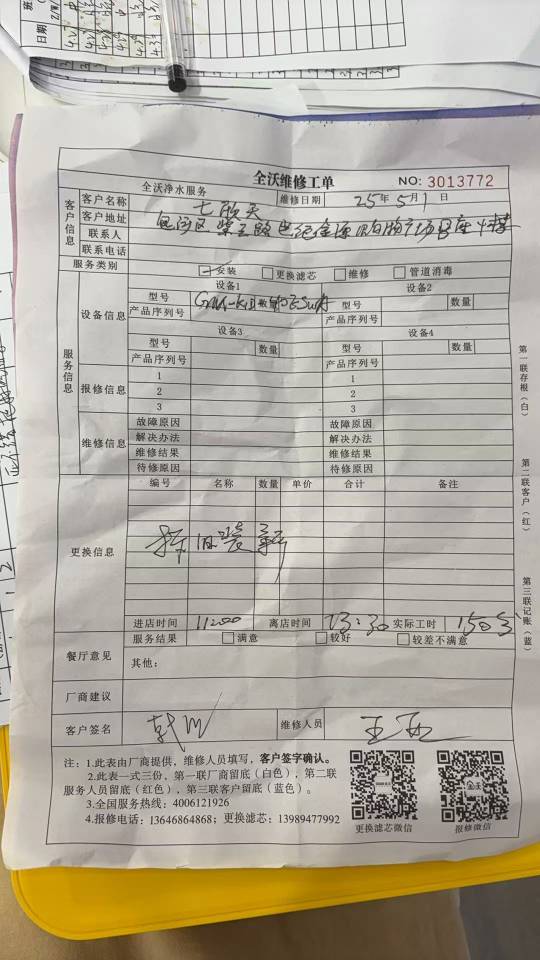 全沃维修工单
NO: 3013772
全沃净水服务 维修日期 25年5月1日
客户信息
客户名称 七欣天
客户地址 包河区紫云路
联系人
联系电话
服务类别 安装 更换滤芯 维修 管道消毒
服务信息
设备信息
设备1 设备2
型号 数量 型号 数量
产品序列号 产品序列号
设备3 设备4
型号 数量 型号 数量
产品序列号 产品序列号
报修信息
1 1
2 2
3 3
维修信息
故障原因 故障原因
解决办法 解决办法
维修结果 维修结果
待修原因 待修原因
更换信息
编号 名称 数量 单价 合计 备注
拆旧装新
进店时间 11:00 离店时间 13:30 实际工时 150分
餐厅意见
服务结果 满意 较好 较差不满意
其他:
厂商建议
客户签名 维修人员 王
注：1.此表由厂商提供，维修人员填写，客户签字确认。
2.此表一式三份，第一联厂商留底（白色），第二联
服务人员留底（红色），第三联客户留底（蓝色）。
3.全国服务热线：4006121926
4.报修电话：13646864868；更换滤芯：13989477992
更换滤芯微信 报修微信
第一联存根（白）
第二联客户（红）
第三联记账（蓝）
日期